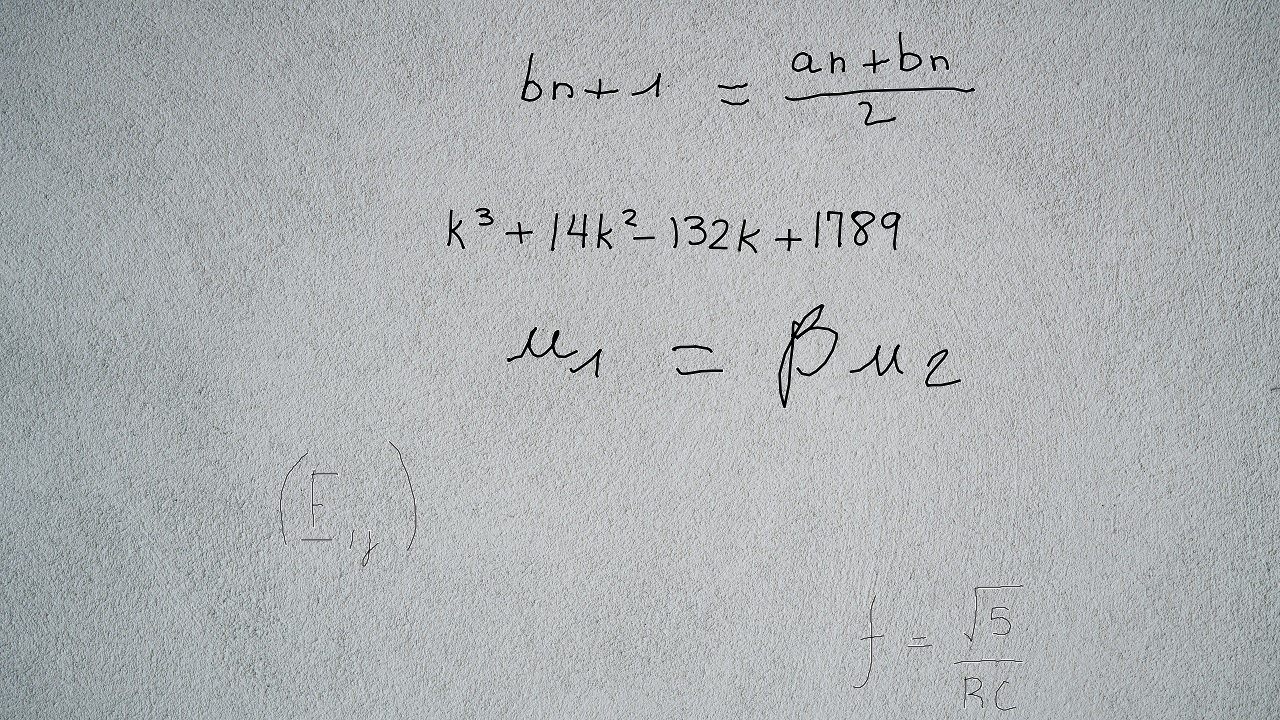 bn+1 = \frac{an+bn}{2}
k^3 + 14k^2 - 132k + 1789
μ_1 = βμ_2
(\underline{F}, y)
f = \frac{\sqrt{5}}{RC}